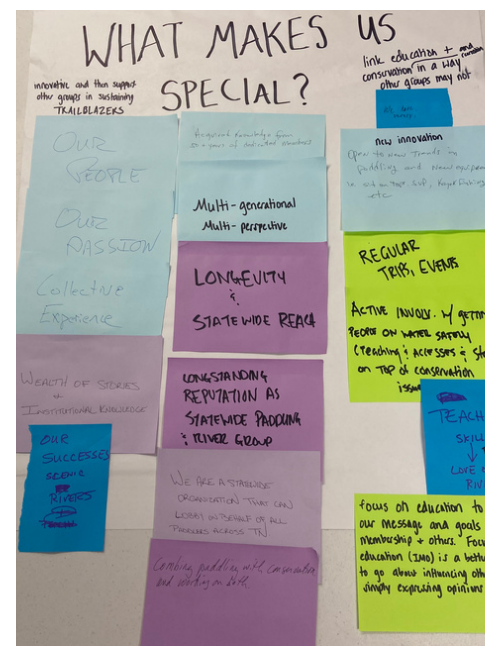 WHAT MAKES US
SPECIAL?
innovative and then support
other groups in sustaining
TRAILBLAZERS
link education + and
conservation in a way
other groups may not
OUR
PEOPLE
OUR
PASSION
Collective
Experience
WEALTH OF STORIES
+
INSTITUTIONAL KNOWLEDGE
OUR
SUCCESSES
SCENIC
RIVERS
Acquired Knowledge from
50+ years of dedicated members
Multi-generational
Multi-perspective
LONGEVITY
&
STATEWIDE REACH
LONGSTANDING
REPUTATION AS
STATEWIDE PADDLING
& RIVER GROUP
WE ARE A STATEWIDE
ORGANIZATION THAT CAN
LOBBY ON BEHALF OF ALL
PADDLERS ACROSS TN
Combing paddling with conservation
and working on both
new innovation
Open to new trends in
paddling and new equipment
i.e. sit on top, SUP, Kayak fishing
etc
REGULAR
TRIPS, EVENTS
ACTIVE INVOLV. w/ GETTIN
PEOPLE ON WATER SAFELY
(Teaching & ACCESSES & St
on TOP of conservation
issu
TEACH
SKILL
↓
LOVE O
RIV
focus on education to
our message and goals
membership + others. Foc
education (IMO) is a bett
to go about influencing oth
simply expressing opinions